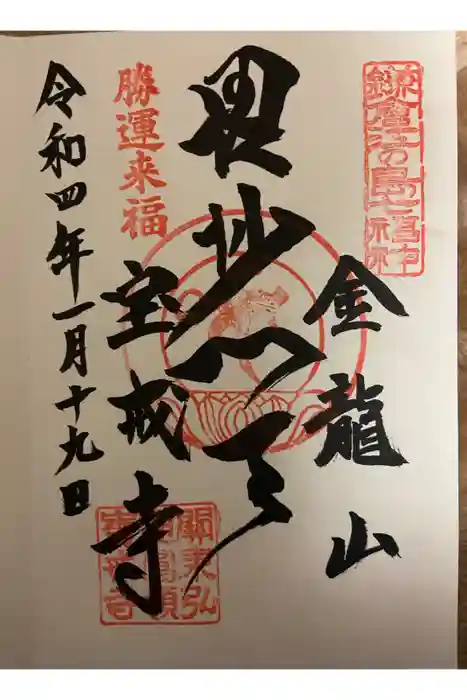 鎌倉江の島七福神
金龍山
毘沙門天
勝運来福
宝戒寺
令和四年一月十九日
關東弘